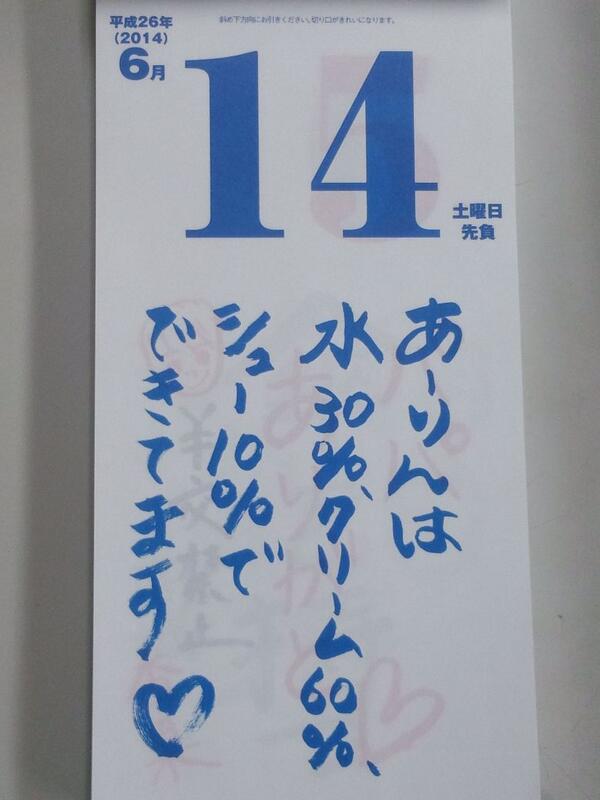 斜め下方向にお引きください。切り口がきれいになります。
平成26年
(2014)
6月
14
土曜日
先負
あーりんは
水30%、クリーム60%、
シュー10%で
できてます♡